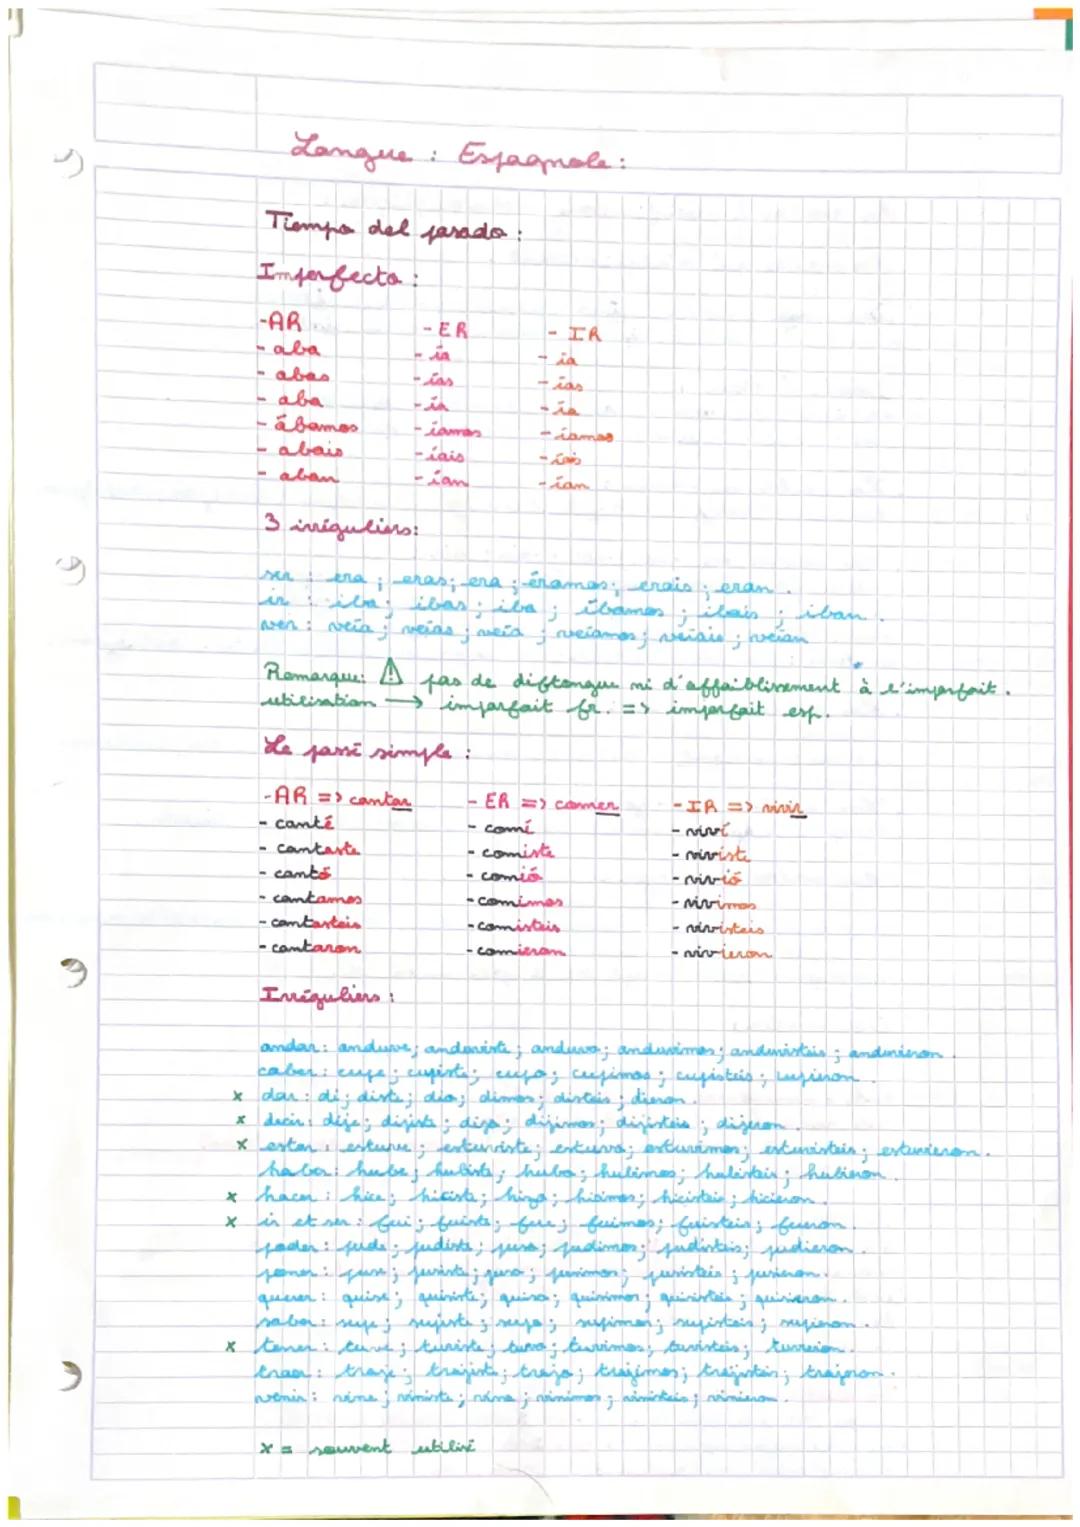 Langue : Espagnole :
Tiempo del pasado :
Imperfecto :
-AR - ER - IR
- aba - ía - ía
- abas - ías - ías
- aba - ía - ía
- ábamos - íamos - íamos
- abais - íais - íais
- aban - ían - ían
3 irréguliers:
ser : era ; eras; era ; éramos; erais ; eran .
ir : iba; ibas ; iba ; íbamos ; ibais ; iban .
ver : veía ; veías ; veía ; veíamos ; veíais ; veían
Remarque: ⚠ pas de diftongue ni d'affaiblissement à l'imparfait .
utilisation → imparfait fr. => imparfait esp.
Le passé simple :
-AR => cantar - ER => comer - IR => vivir
- canté - comí - viví
- cantaste - comiste - viviste
- cantó - comió - vivió
- cantamos - comimos - vivimos
- cantasteis - comisteis - vivisteis
- cantaron - comieron - vivieron
Irréguliers :
andar : anduve; anduviste ; anduvo; anduvimos; anduvisteis ; anduvieron .
caber : cupe ; cupiste; cupo; cupimos ; cupisteis ; cupieron .
x dar : di ; diste; dio; dimos; disteis ; dieron .
x decir : dije ; dijiste ; dijo; dijimos; dijisteis ; dijeron .
x estar : estuve ; estuviste; estuvo; estuvimos; estuvisteis ; estuvieron .
haber : hube; hubiste; hubo; hubimos; hubisteis; hubieron .
x hacer : hice; hiciste; hizo; hicimos; hicisteis ; hicieron .
x ir et ser : fui ; fuiste; fue; fuimos; fuisteis; fueron .
poder : pude; pudiste; puso; pudimos; pudisteis; pudieron .
poner : puse ; pusiste; puso ; pusimos; pusisteis ; pusieron .
querer : quise; quisiste; quiso; quisimos; quisisteis ; quisieron .
saber : supe; supiste ; supo; supimos; supisteis ; supieron .
x tener : tuve ; tuviste; tuvo; tuvimos; tuvisteis; tuvieron .
traer : traje; trajiste; trajo; trajimos; trajisteis; trajeron .
venir : vine; viniste; vino ; vinimos ; vinisteis; vinieron .
x = souvent utilisé